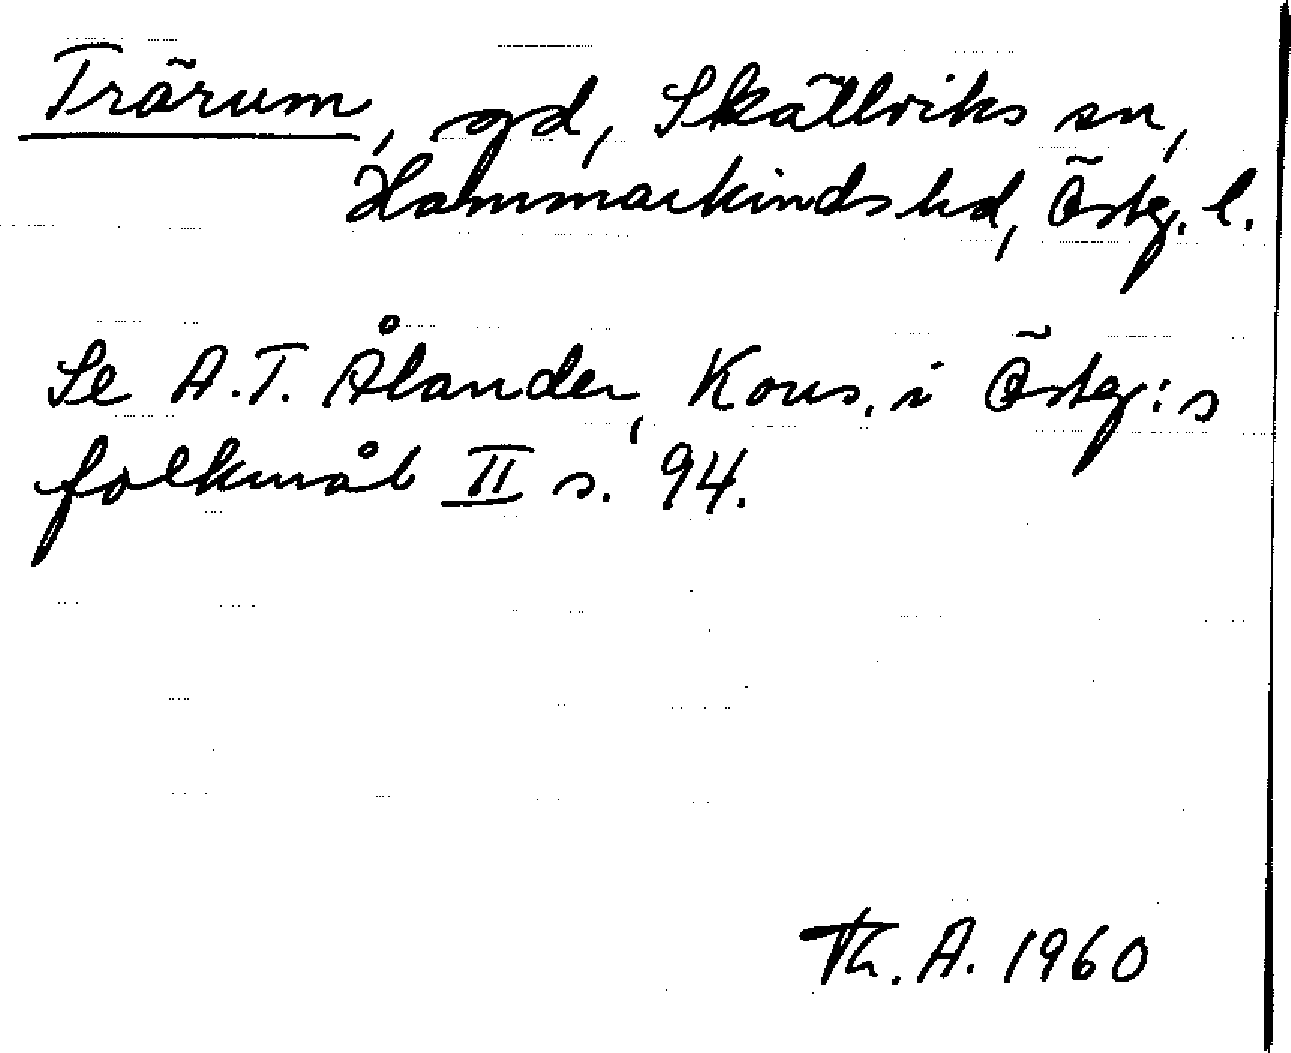 Trärum, gd, Skällviks sn,
Hammarkinds hd, Östg. l.
Se A.T. Ålander, Kons. i Östg:s
folkmål II s. 94.
Th. A. 1960